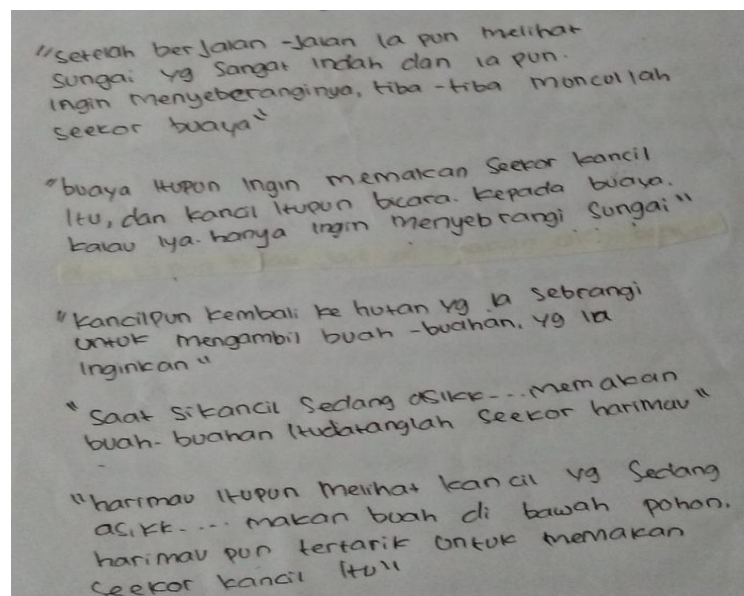 "setelah berjalan-jalan ia pun melihat
sungai yg sangat indah dan ia pun.
ingin menyeberanginya, tiba-tiba moncollah
seekor buaya"
"buaya itupun ingin memakan seekor kancil
itu, dan kancil itupun bicara. kepada buaya.
kalau iya. hanya ingin menyebrangi sungai"
"kancilpun kembali ke hutan yg ia sebrangi
untuk mengambil buah-buahan. yg ia
inginkan"
"saat sikancil sedang asikk---memakan
buah-buahan itudatanglah seekor harimau"
"harimau itupun melihat kancil yg sedang
asikk.... makan buah di bawah pohon.
harimau pun tertarik untuk memakan
seekor kancil itu"